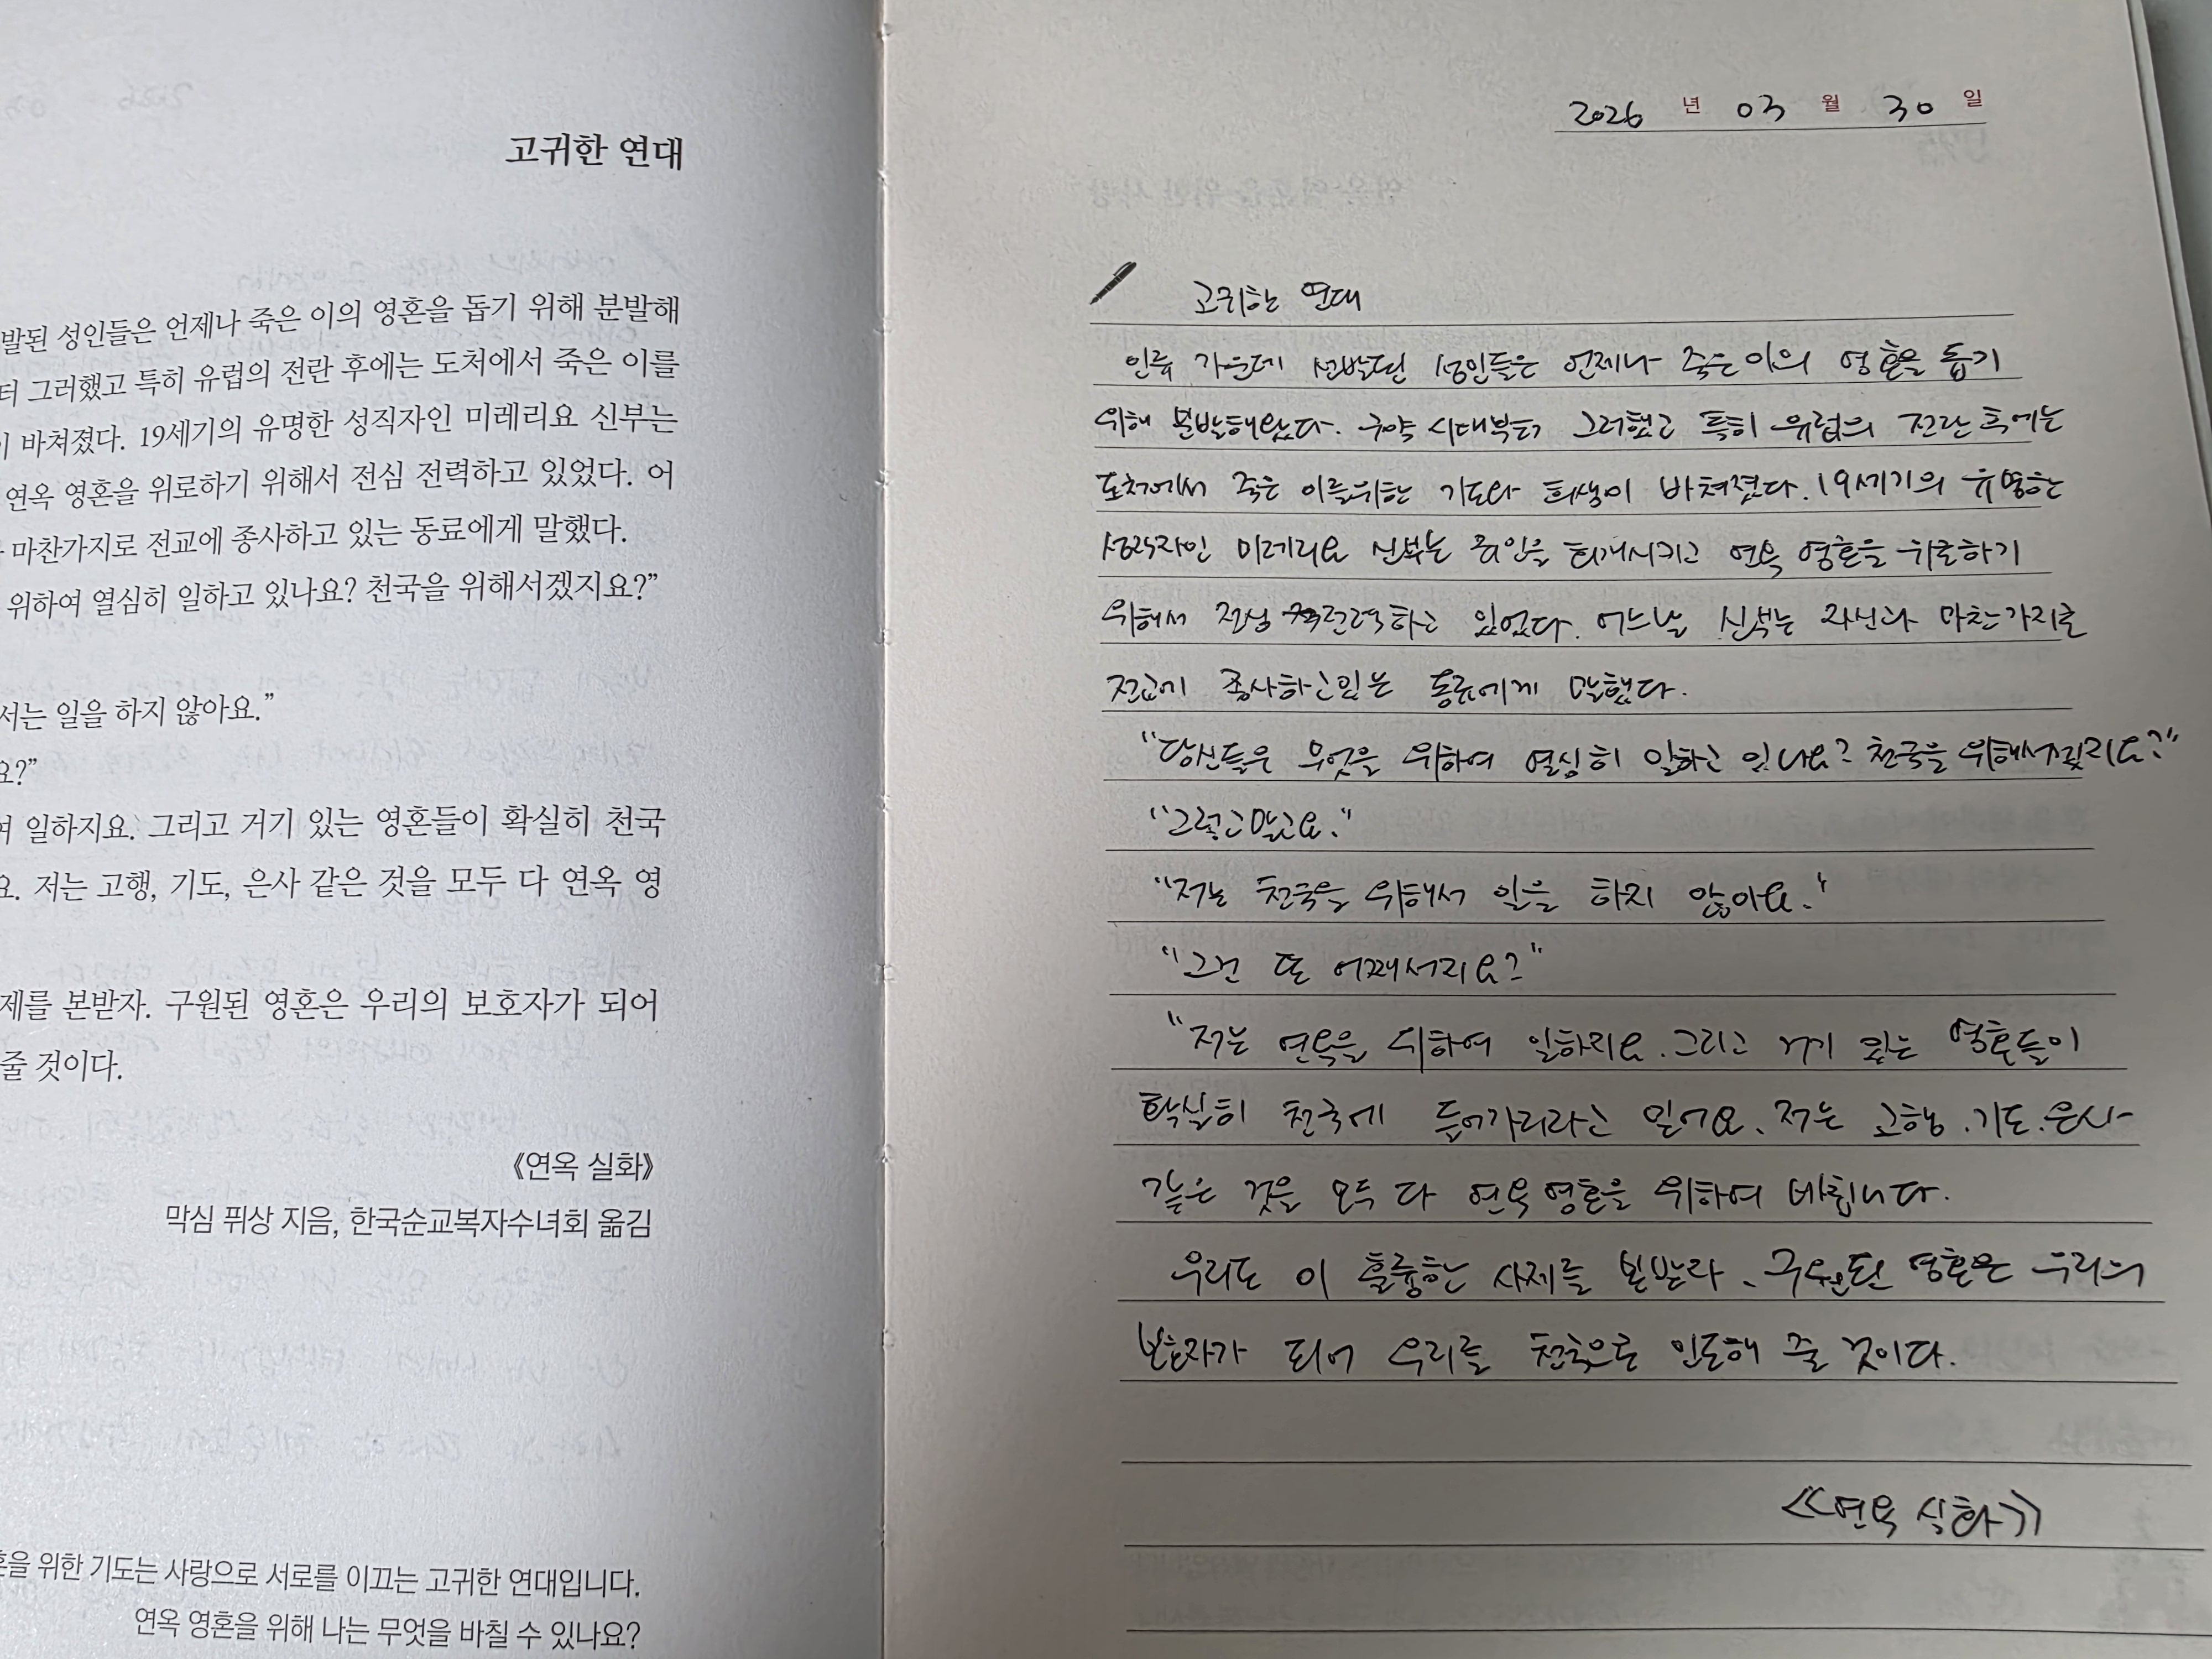 고귀한 연대
발된 성인들은 언제나 죽은 이의 영혼을 돕기 위해 분발해
터 그러했고 특히 유럽의 전란 후에는 도처에서 죽은 이를
이 바쳐졌다. 19세기의 유명한 성직자인 미레리요 신부는
연옥 영혼을 위로하기 위해서 전심 전력하고 있었다. 어
마찬가지로 전교에 종사하고 있는 동료에게 말했다.
위하여 열심히 일하고 있나요? 천국을 위해서겠지요?”
서는 일을 하지 않아요.”
요?”
여 일하지요. 그리고 거기 있는 영혼들이 확실히 천국
요. 저는 고행, 기도, 은사 같은 것을 모두 다 연옥 영
제를 본받자. 구원된 영혼은 우리의 보호자가 되어
줄 것이다.
《연옥 실화》
막심 퓌상 지음, 한국순교복자수녀회 옮김
혼을 위한 기도는 사랑으로 서로를 이끄는 고귀한 연대입니다.
연옥 영혼을 위해 나는 무엇을 바칠 수 있나요?
2026 년 03 월 30 일
고귀한 연대
인류 가운데 선발된 성인들은 언제나 죽은이의 영혼을 돕기
위해 분발해왔다. 구약 시대부터 그러했고 특히 유럽의 전란 후에는
도처에서 죽은 이를위한 기도와 희생이 바쳐졌다. 19세기의 유명한
성직자인 미레리요 신부는 죄인을 회개시키고 연옥 영혼을 위로하기
위해서 전심 전력하고 있었다. 어느날 신부는 자신과 마찬가지로
전교에 종사하고있는 동료에게 말했다.
"당신들은 무엇을 위하여 열심히 일하고 있나요? 천국을 위해서겠지요?"
"그렇고말고요."
"저는 천국을 위해서 일을 하지 않아요."
"그건 또 어째서지요?"
"저는 연옥을 위하여 일하지요. 그리고 거기 있는 영혼들이
확실히 천국에 들어가리라고 믿어요. 저는 고행. 기도. 은사
같은 것을 모두 다 연옥영혼을 위하여 바칩니다.
우리도 이 훌륭한 사제를 본받자. 구원된 영혼은 우리의
보호자가 되어 우리를 천국으로 인도해 줄 것이다.
<<연옥 실화>>